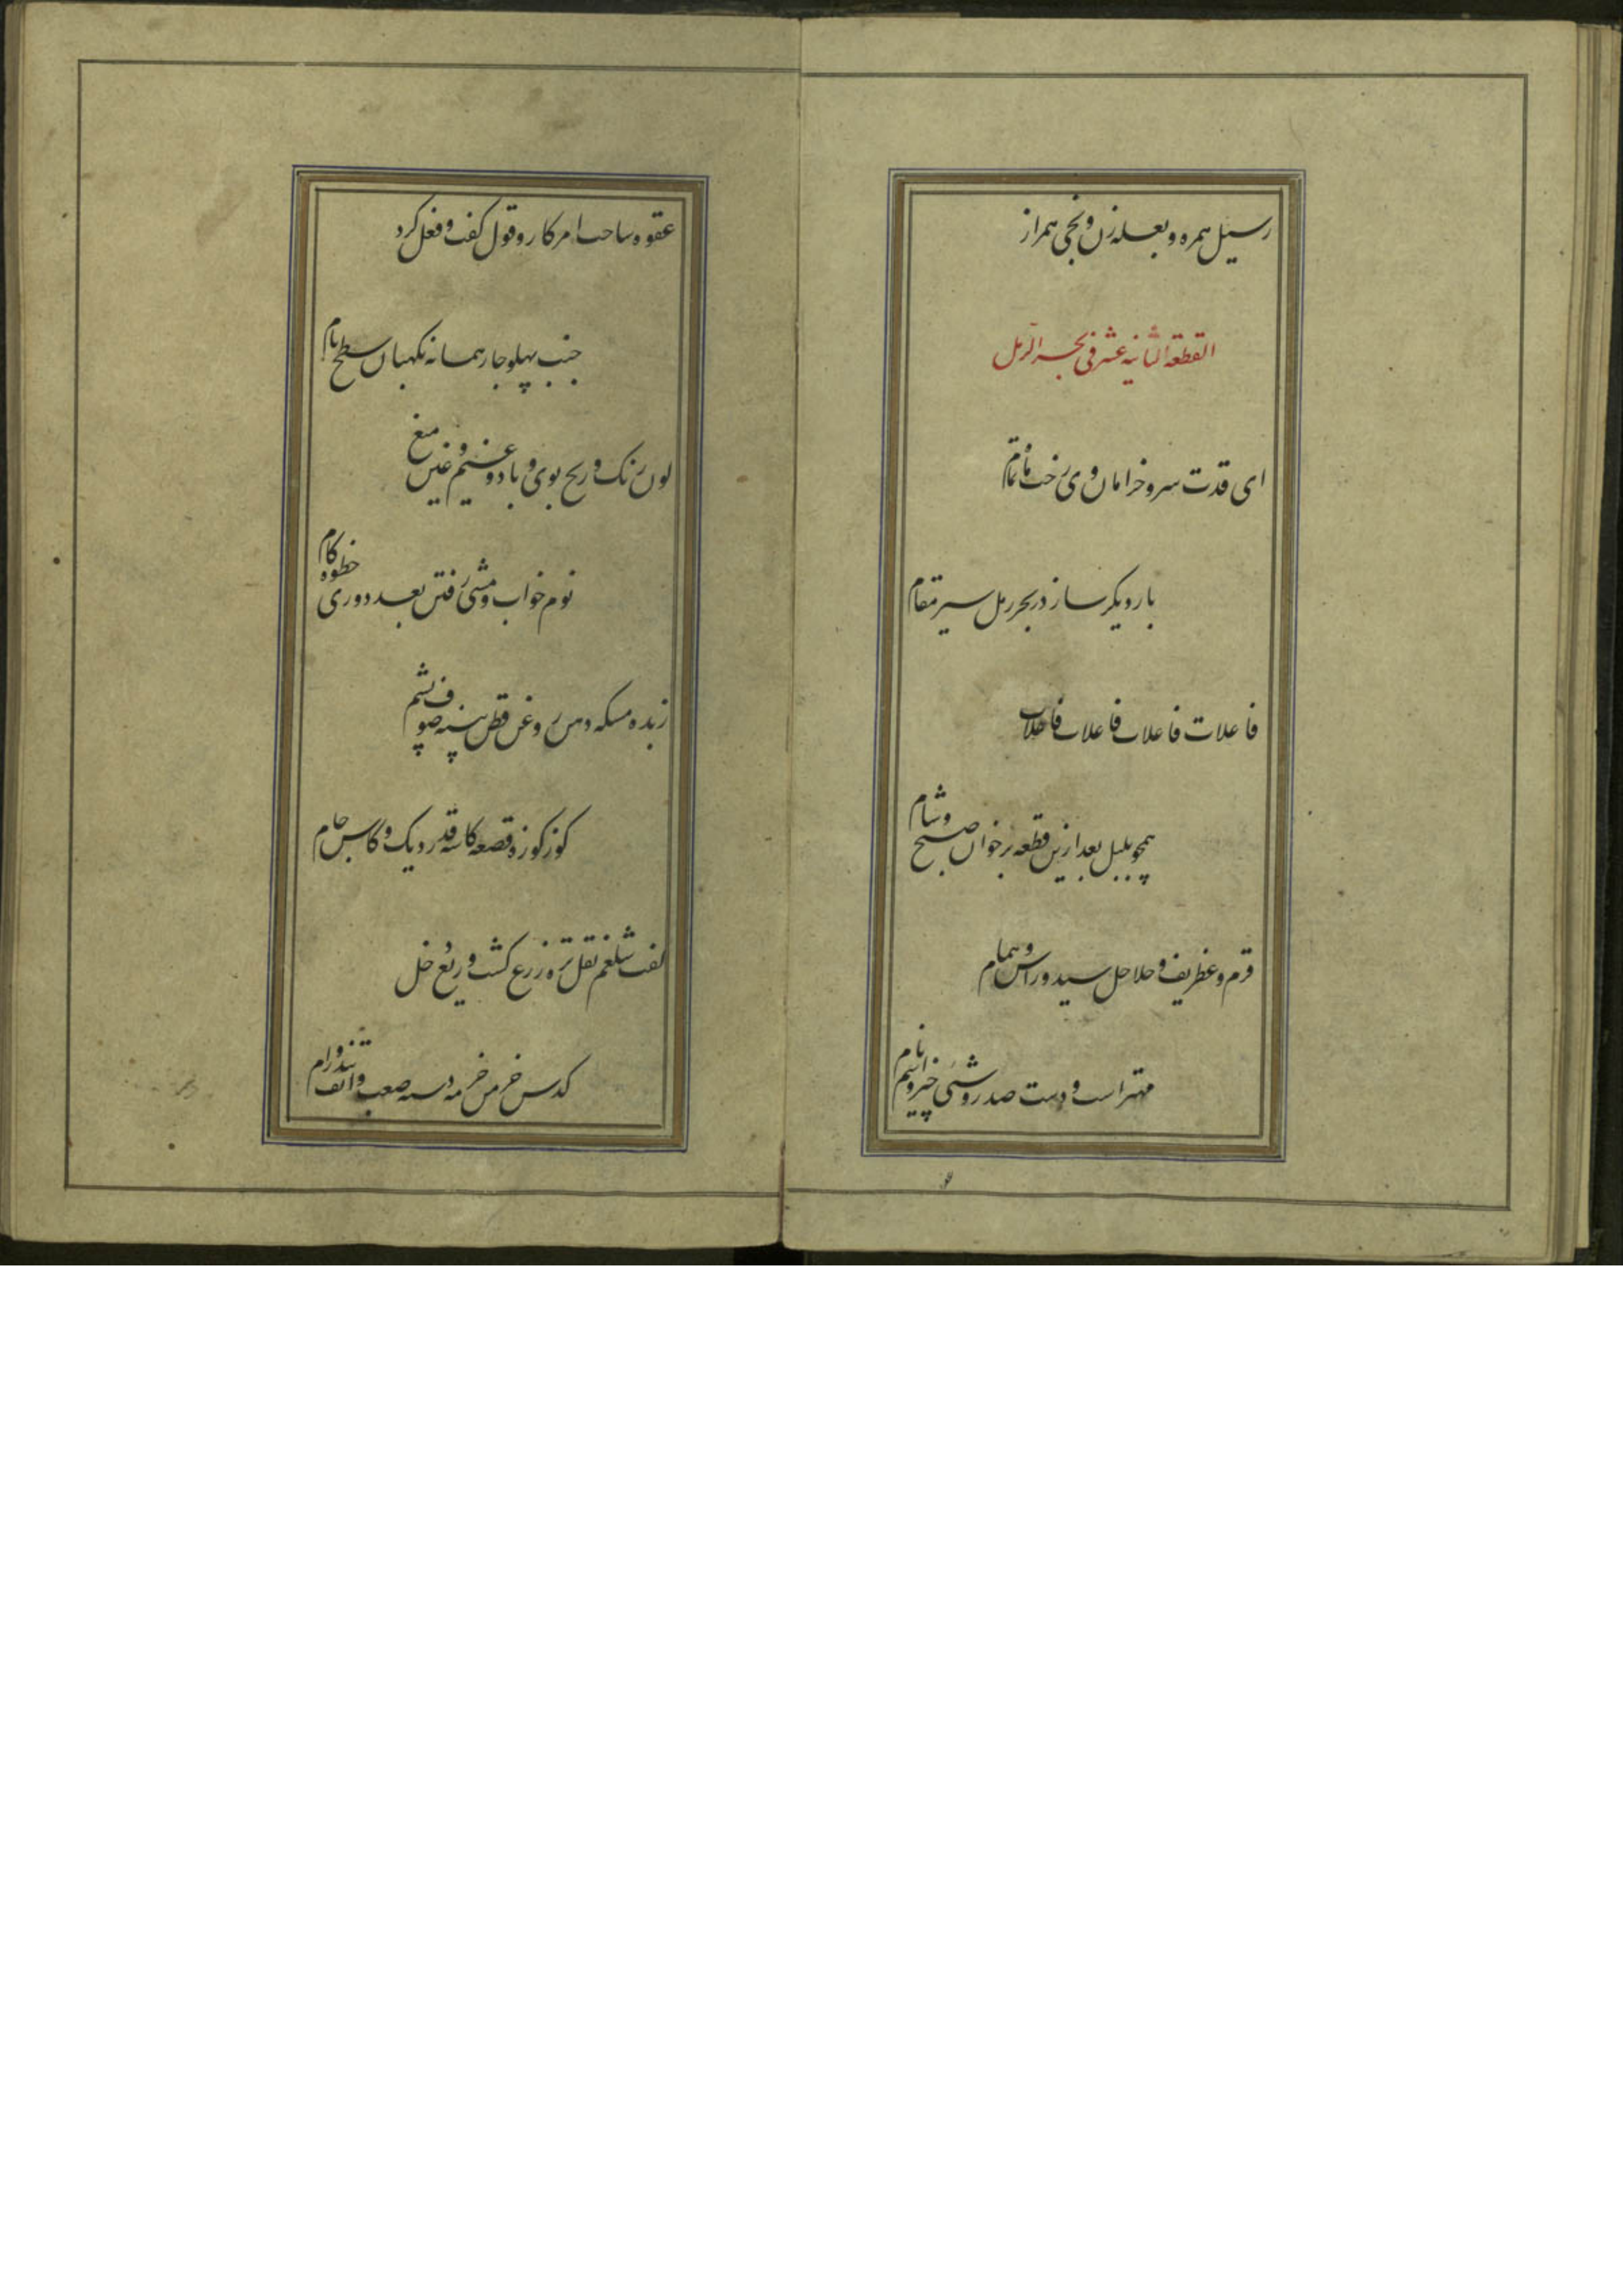 رسیل همره و بعله زن و نجی همراز
القطعة الثانیه عشر فی بحر الرمل
ای قدت سرو خرامان وی رخت ماه تمام
بار دیکر ساز در بحر رمل سیر مقام
فاعلات فاعلات فاعلات فاعلات
همچو بلبل بعد ازین قطعه برخوان صبح و شام
قرم و غطریف و حلاحل سید و راس و همام
مهتر است و دست صدر و شئی چیز و اسم نام
عقوه ساحت امر کار و قول کفت و فعل کرد
جنب پهلو جار همسانه نکهبان سطح بام
لون رنک و ریح بوی و باد و غیم و غین میغ
نوم خواب و مشی رفتن بعد دوری خطوه کام
زبده مسکه دهن روغن قطن پنبه صوف پشم
کوز کوزه قصعه کاسه قدر دیک و کاس جام
لفت شلغم بقل تره زرع کشت و ریع خل
کدس خرمن خرمه دسته صعب و